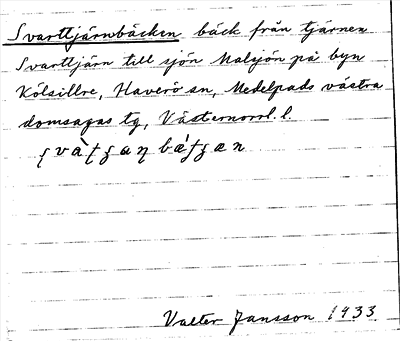 Svarttjärnbäcken bäck från tjärnen
Svarttjärn till sjön Malsjön på byn
Kölsillre, Haverö sn, Medelpads västra
domsagas tg, Västernorrl. l.
Valter Jansson 1933